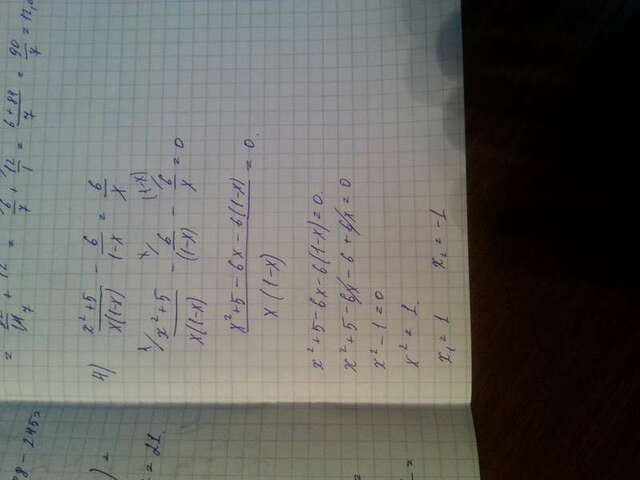 8 - 245 =
= 6/7 + 12/1 = (6 + 84)/7 = 90/7 = 12,
) =
= 21.
4) (x² + 5)/(x(1-x)) - 6/(1-x) = 6/x
1/ (x² + 5)/(x(1-x)) - x/ 6/(1-x) - (1-x)/ 6/x = 0
(x² + 5 - 6x - 6(1-x))/(x(1-x)) = 0.
x² + 5 - 6x - 6(1-x) = 0.
x² + 5 - 6x - 6 + 6x = 0
x² - 1 = 0
x² = 1.
x₁ = 1 x₂ = -1